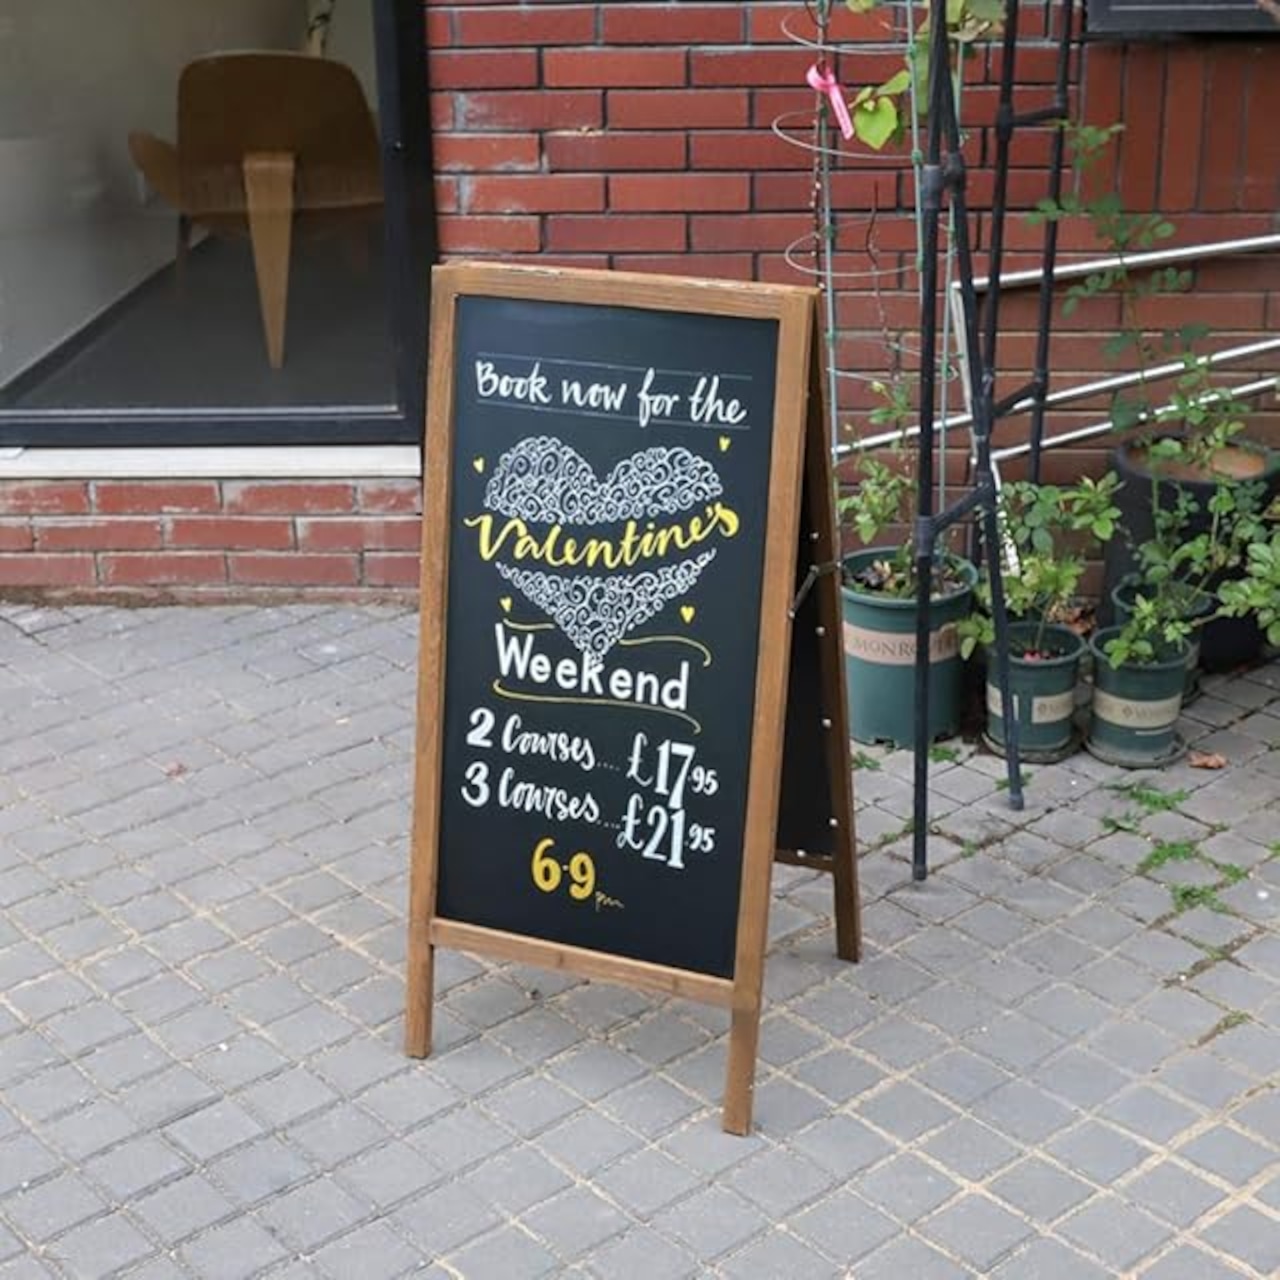 Book now for the
Valentine's
Weekend
2 Courses.... £17.95
3 Courses.... £21.95
6-9pm